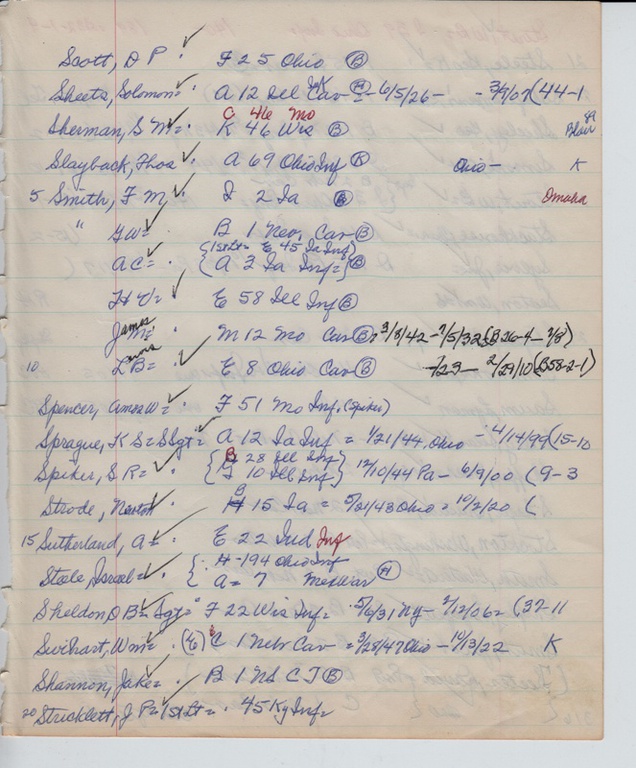 Scott, D P. F 25 Ohio (B)
Sheets, Solomon= A 12 Ill Cav (H) = 6/5/26 - - 3/7/07 (44-1
C 46 Mo
Sherman, S M= . K 46 Wis (B) Blair
Slayback, Thos . A 69 Ohio Inf (K) Ohio- K
5 Smith, F M . I 2 Ia (B) Omaha
" G W= . B 1 Nev, Cav (B)
{1st Lt= E 45 Ia Inf}
A C= . {A 2 Ia Inf=} (B)
H V= E 58 Ill Inf (B)
James M= . M 12 Mo Cav (B) = 3/8/42 - 7/5/32 (B26-4- 7/8)
10 L B= . E 8 Ohio Cav (B) -/23- 2/29/10 (B58-2-1)
Spencer, Amos W= . F 51 Mo Inf, (Spiker)
Sprague, K S= S Sgt= A 12 Ia Inf = 1/21/44, Ohio - 4/14/99 (15-10
B 28 Ill Inf
Spiker, S R= . {I 10 Ill Inf} 12/10/44 Pa- 6/9/00 (9-3
Strode, Newton . H 15 Ia = 5/21/43 Ohio = 10/2/20 (
B
15 Sutherland, A= . E 22 Ind Inf
{. H-194 Ohio Inf
Steele, Israel= . A= 7 Mex War (H)
Sheldon D B= Sgt= F 22 Wis Inf= 5/6/31 Ny- 2/12/06= (32-11
Swihart, Wm= . (E) C 1 Nebr Cav = 3/28/47 Ohio - 10/13/22 K
Shannon, Jake= . B 1 Nd C I (B)
20 Stricklett, J P= 1st Lt= . 45 Ky Inf=